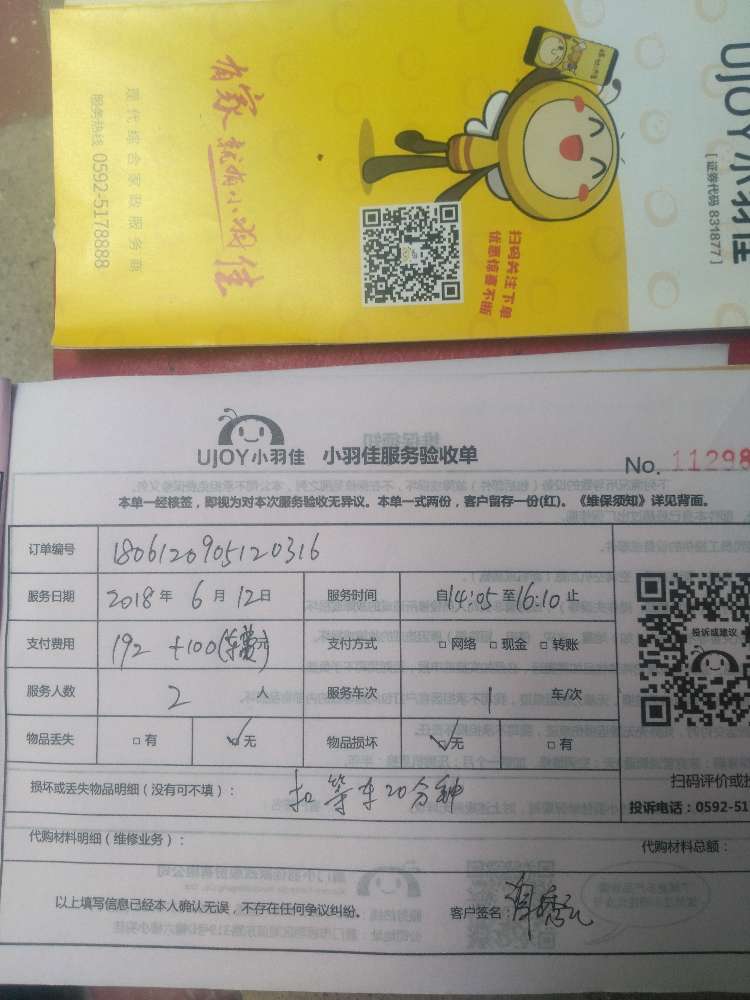 UJOY小羽佳
[证券代码 831877]
扫码关注下单
优惠惊喜不断
有家 就有小羽佳
现代综合家政服务商
服务热线 0592-5178888
UJOY小羽佳 小羽佳服务验收单
No. 11298
本单一经核签，即视为对本次服务验收无异议。本单一式两份，客户留存一份(红)。《维保须知》详见背面。
订单编号 1806120905120316
服务日期 2018 年 6 月 12 日 服务时间 自 14:05 至 16:10 止
支付费用 192 +100(车费) 元 支付方式 □ 网络 □ 现金 □ 转账
服务人数 2 人 服务车次 1 车/次
物品丢失 □ 有 ☑ 无 物品损坏 ☑ 无 □ 有
投诉或建议
损坏或丢失物品明细（没有可不填）： 扣等车20分钟
扫码评价或投
投诉电话：0592-51
代购材料明细（维修业务）： 代购材料总额：
以上填写信息已经本人确认无误，不存在任何争议纠纷。 客户签名：